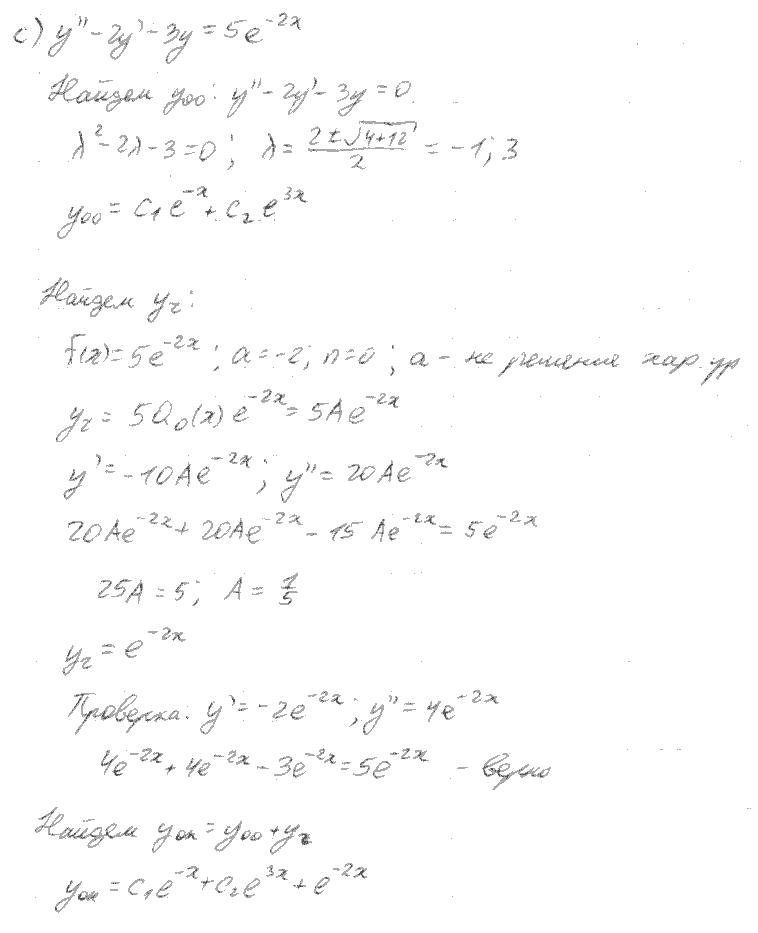 c) y'' - 2y' - 3y = 5e^{-2x}
Найдем y₀₀: y'' - 2y' - 3y = 0
λ² - 2λ - 3 = 0; λ = (2 ± √(4+12))/2 = -1; 3
y₀₀ = C₁e^{-x} + C₂e^{3x}
Найдем yᵣ:
f(x) = 5e^{-2x}; a = -2; n = 0; a - не решение хар. ур
yᵣ = 5Q₀(x)e^{-2x} = 5Ae^{-2x}
y' = -10Ae^{-2x}; y'' = 20Ae^{-2x}
20Ae^{-2x} + 20Ae^{-2x} - 15Ae^{-2x} = 5e^{-2x}
25A = 5; A = 1/5
yᵣ = e^{-2x}
Проверка: y' = -2e^{-2x}; y'' = 4e^{-2x}
4e^{-2x} + 4e^{-2x} - 3e^{-2x} = 5e^{-2x} - верно
Найдем yₒₙ = y₀₀ + yᵣ
yₒₙ = C₁e^{-x} + C₂e^{3x} + e^{-2x}